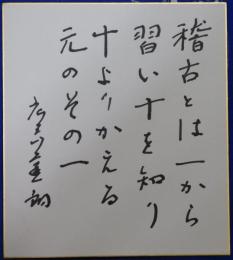 稽古とは一から
習い十を知り
十よりかえる
元のその一